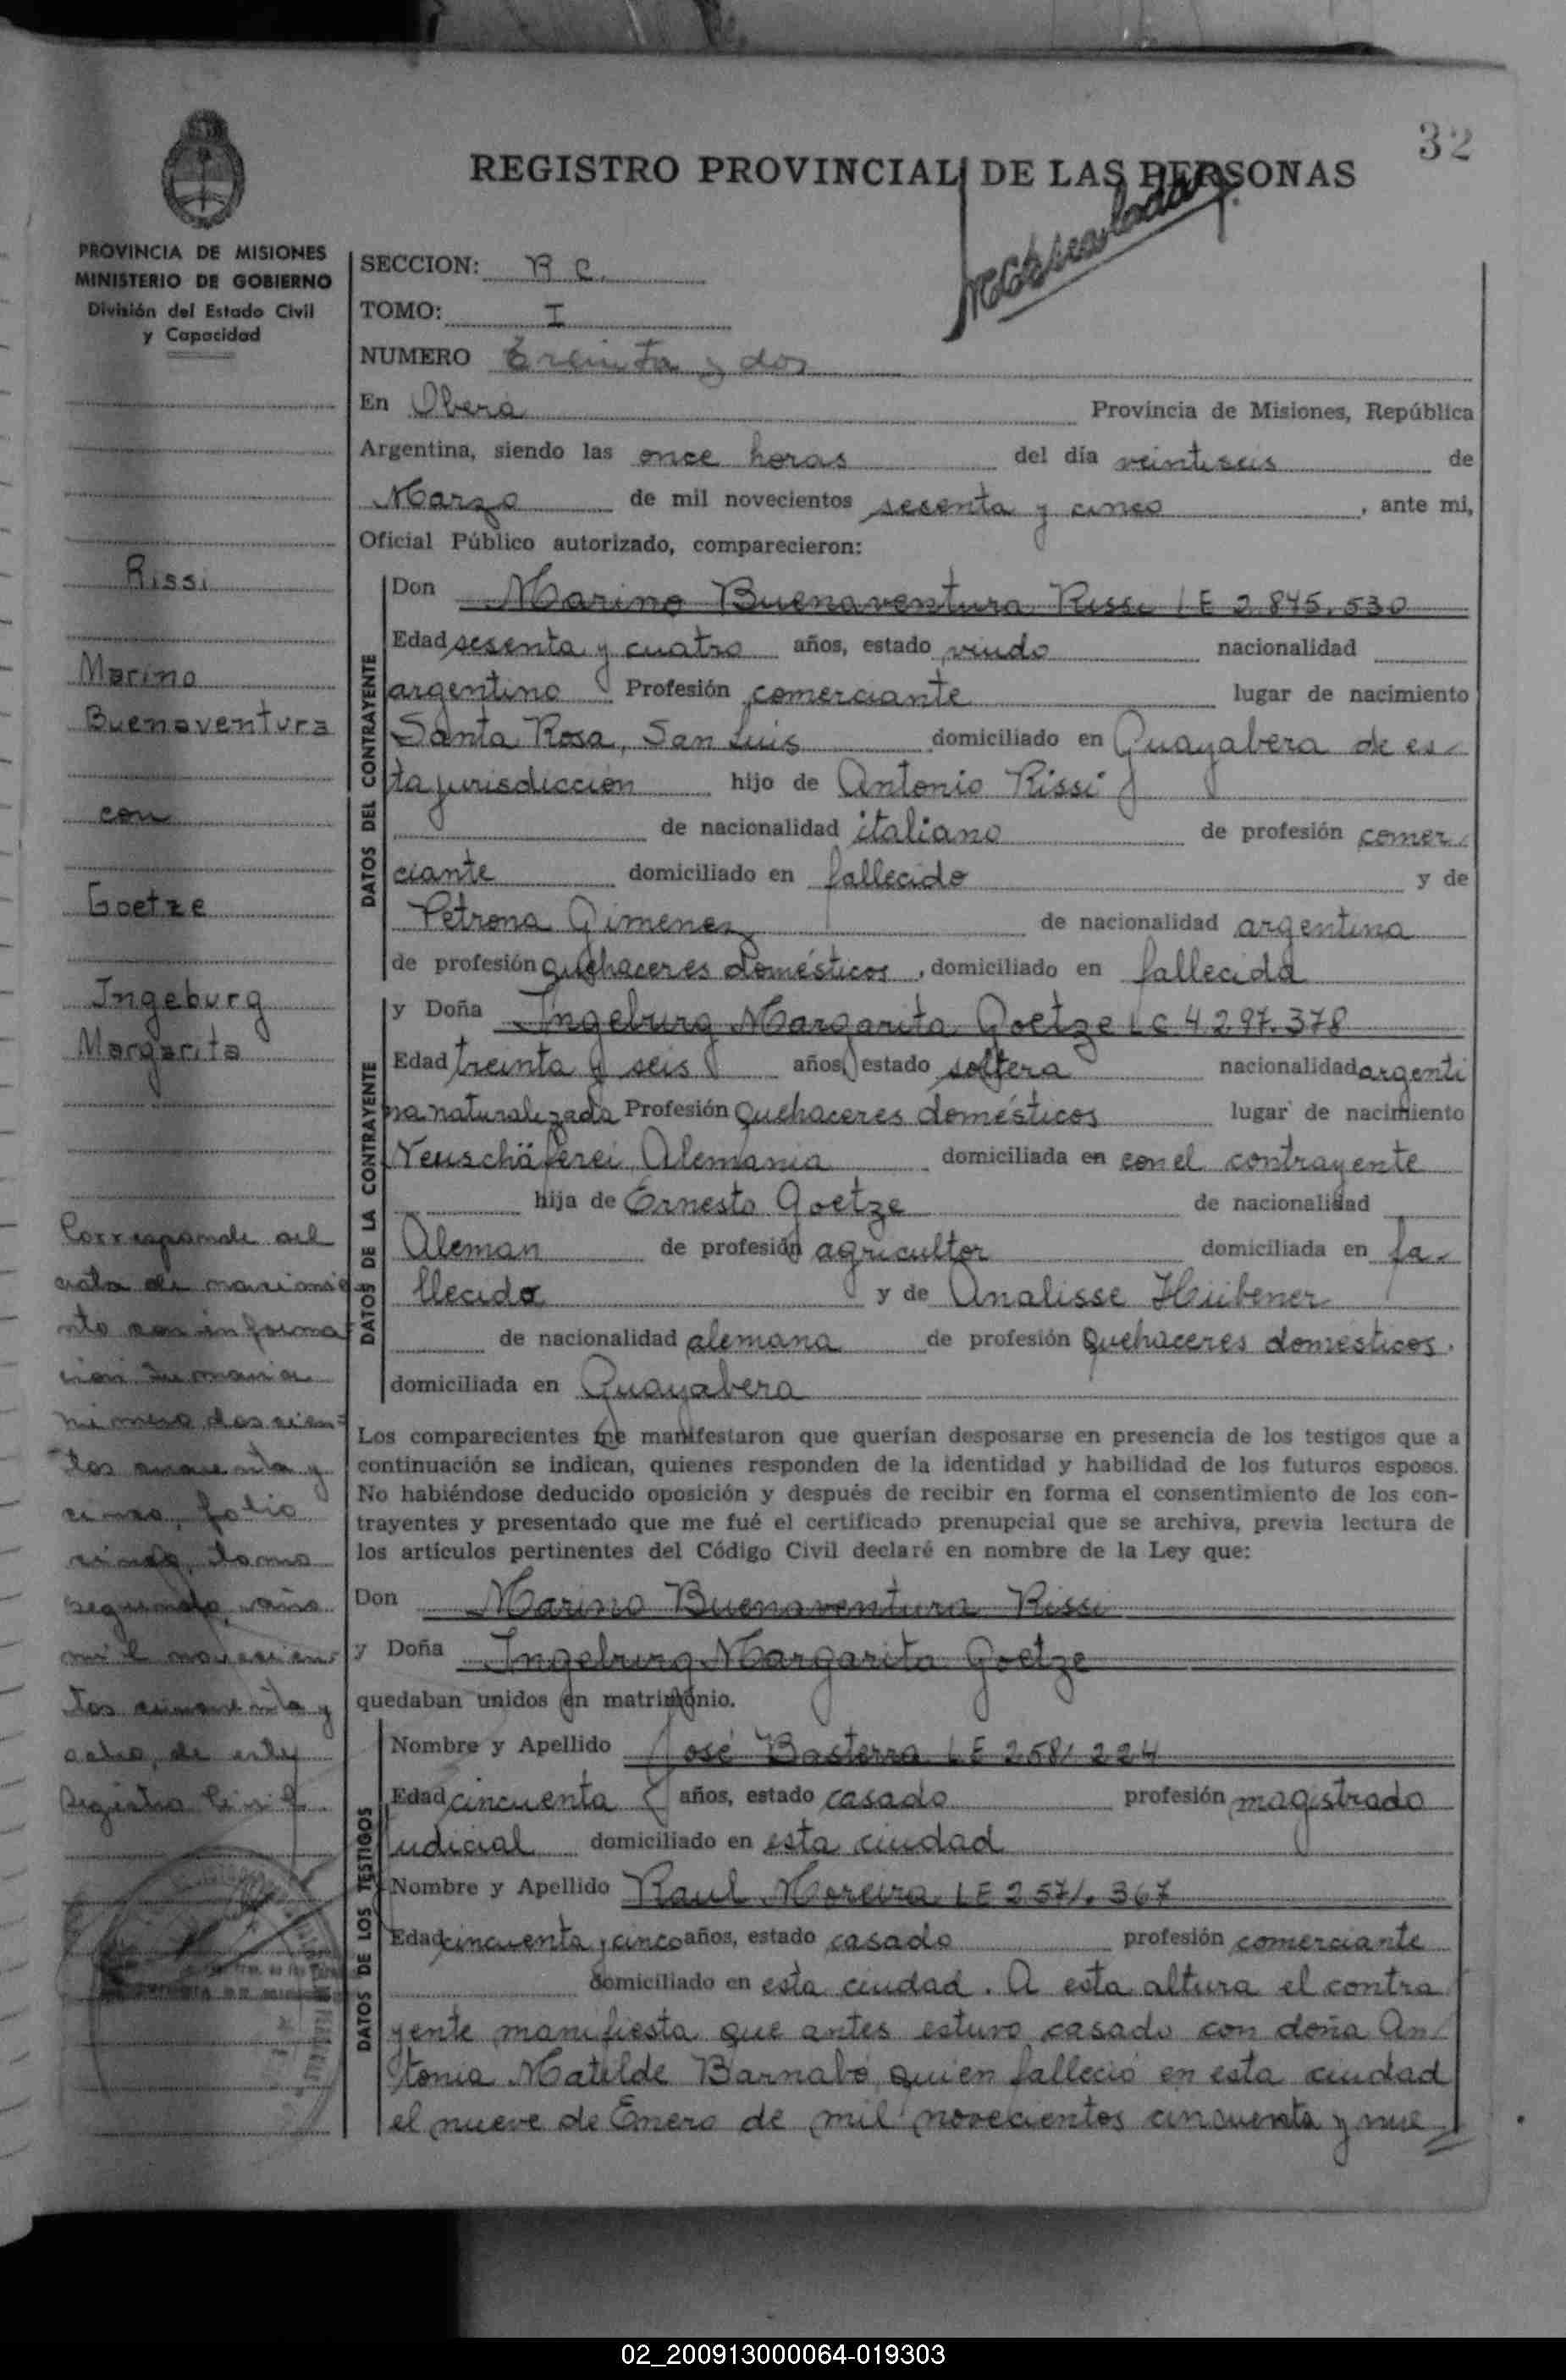 32
REGISTRO PROVINCIAL DE LAS PERSONAS
PROVINCIA DE MISIONES
MINISTERIO DE GOBIERNO
División del Estado Civil
y Capacidad
Rissi
Marino
Buenaventura
con
Goetze
Ingeburg
Margarita
Corresponde al
acta de
folio
tomo
segundo, año
mil novecien-
tos cincuenta y
ocho, de este
Registro Civil
SECCION: R C.
TOMO: I
NUMERO treinta y dos
En Oberá Provincia de Misiones, República
Argentina, siendo las once horas del día veintiseis de
Marzo de mil novecientos sesenta y cinco, ante mi,
Oficial Público autorizado, comparecieron:
DATOS DEL CONTRAYENTE
Don Marino Buenaventura Rissi LE 2.845.530
Edad sesenta y cuatro años, estado viudo nacionalidad
argentino Profesión comerciante lugar de nacimiento
Santa Rosa, San Luis domiciliado en Guayabera de es-
ta jurisdicción hijo de Antonio Rissi
de nacionalidad italiano de profesión comer-
ciante domiciliado en fallecido y de
Petrona Gimenez de nacionalidad argentina
de profesión quehaceres domésticos, domiciliado en fallecida
DATOS DE LA CONTRAYENTE
y Doña Ingeburg Margarita Goetze LC 4.297.378
Edad treinta y seis años, estado soltera nacionalidad argenti
na naturalizada Profesión quehaceres domésticos lugar de nacimiento
Neuschäferei, Alemania domiciliada en con el contrayente
hija de Ernesto Goetze de nacionalidad
Aleman de profesión agricultor domiciliada en fa-
llecido y de Analisse Hüibener
de nacionalidad alemana de profesión quehaceres domésticos.
domiciliada en Guayabera
Los comparecientes me manifestaron que querían desposarse en presencia de los testigos que a
continuación se indican, quienes responden de la identidad y habilidad de los futuros esposos.
No habiéndose deducido oposición y después de recibir en forma el consentimiento de los con-
trayentes y presentado que me fué el certificado prenupcial que se archiva, previa lectura de
los artículos pertinentes del Código Civil declaré en nombre de la Ley que:
Don Marino Buenaventura Rissi
y Doña Ingeburg Margarita Goetze
quedaban unidos en matrimonio.
DATOS DE LOS TESTIGOS
Nombre y Apellido José Basterra LE 2581224
Edad cincuenta años, estado casado profesión magistrado
judicial domiciliado en esta ciudad
Nombre y Apellido Raul Moreira LE 2.571.367
Edad cincuenta y cinco años, estado casado profesión comerciante
domiciliado en esta ciudad. A esta altura el contra
yente manifiesta que antes estuvo casado con doña An
tonia Matilde Barnabó, quien falleció en esta ciudad
el nueve de Enero de mil novecientos cincuenta y nue
02_200913000064-019303